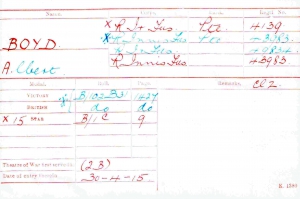 Name. Corps. Rank. Regtl. No.
X R. Ir. Fus Pte 4139
BOYD.
Albert.
R. Innis Fus 43983
Medal. Roll. Page. Remarks. Cl Z
VICTORY B/102 B31 1427
BRITISH do do
X 15 STAR B/1 C 9
Theatre of War first served in (2B)
Date of entry therein 30-4-15